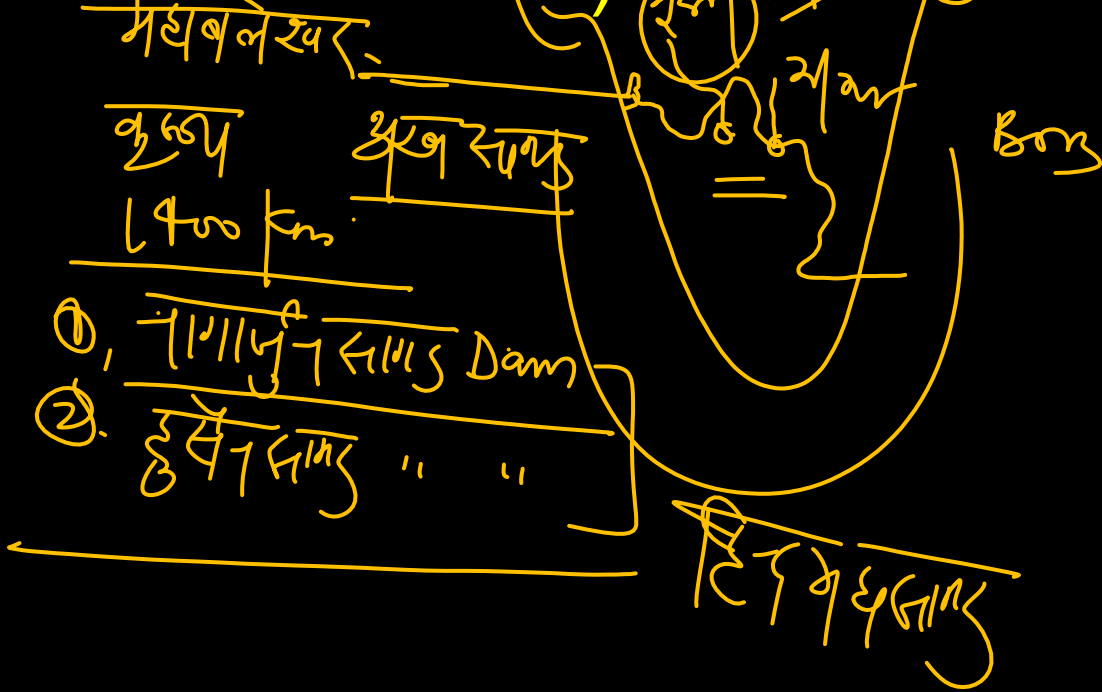 महाबलेश्वर
कृष्णा अरब सागर
1400 Km.
①, नागार्जुन सागर Dam
②. हुसैन सागर " "
BOB
हिन्द महासागर